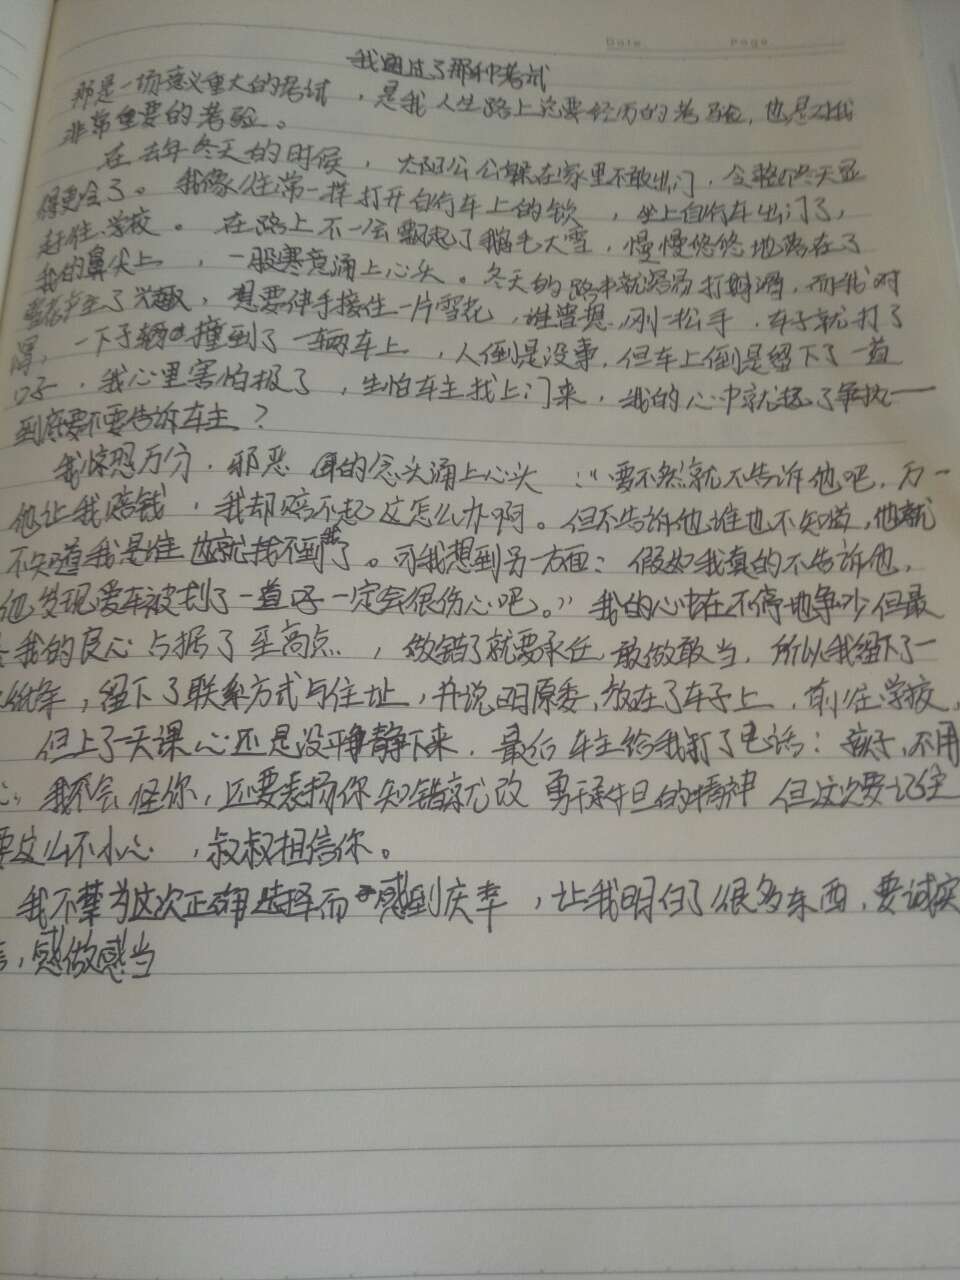 Date Page
我通过了那种考试
那是一场意义重大的考试，是我人生路上需要经历的考验，也是对我
非常重要的考验。
在去年冬天的时候，太阳公公躲在家里不敢出门，令整个冬天显
得更冷了。我像往常一样打开自行车上的锁，坐上自行车出门了，
赶往学校。在路上不一会飘起了鹅毛大雪，慢慢悠悠地落在了
我的鼻尖上，一股寒意涌上心头。冬天的路本就容易打滑，而我对
雪花产生了兴趣，想要伸手接住一片雪花，谁曾想，刚一松手，车子就打了
滑，一下子撞到了一辆车上，人倒是没事，但车上倒是留下了一道
口子，我心里害怕极了，生怕车主找上门来，我的心中就起了争执一
到底要不要告诉车主？
我惊恐万分，邪恶的念头涌上心头：“要不然就不告诉他吧，万一
他让我赔钱，我却赔不起这怎么办啊。但不告诉他谁也不知道，他就
不知道我是谁也就找不到我了。可我想到另一方面：假如我真的不告诉他，
他发现爱车被划了一道口子一定会很伤心吧。”我的心中在不停地争吵但最
我的良心占据了至高点，做错了就要承任，敢做敢当，所以我留下了一
纸条，留下了联系方式与住址，并说明原委，放在了车子上，前往学校，
但上了一天课心还是没平静下来，最后车主给我打了电话：孩子，不用
心，我不会怪你，还要表扬你知错就改勇于承担的精神但这次要记住
要这么不小心，叔叔担信你。
我不禁为这次正确选择而感到庆幸，让我明白了很多东西，要诚实
言，感做感当